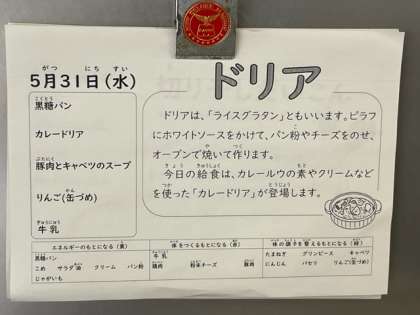 5月31日(水)
黒糖パン
カレードリア
豚肉とキャベツのスープ
りんご(缶づめ)
牛乳
ドリア
ドリアは、「ライスグラタン」ともいいます。ピラフ
にホワイトソースをかけて、パン粉やチーズをのせ、
オーブンで焼いて作ります。
今日の給食は、カレールウの素やクリームなど
を使った「カレードリア」が登場します。
エネルギーのもとになる(黄)
黒糖パン
こめ サラダ油 クリーム パン粉
じゃがいも
体をつくるもとになる(赤)
牛乳
鶏肉 粉末チーズ 豚肉
体の調子を整えるもとになる(緑)
たまねぎ グリンピース キャベツ
にんじん パセリ りんご(缶づめ)